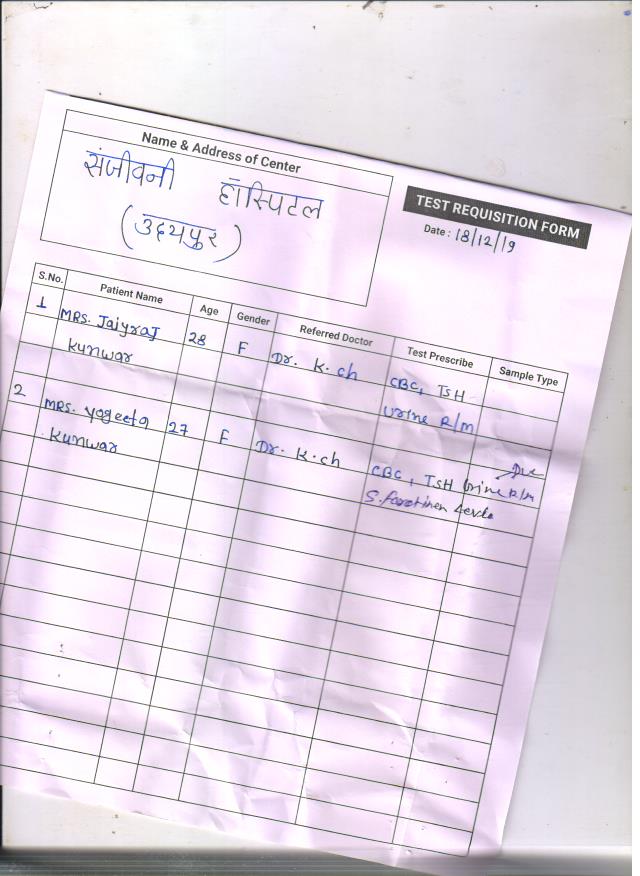 Name & Address of Center
संजीवनी हॉस्पिटल
(उदयपुर)
TEST REQUISITION FORM
Date : 18/12/19
S.No. Patient Name Age Gender Referred Doctor Test Prescribe Sample Type
1 MRS. Jaiyraj 28 F Dr. K. ch CBC, TSH
Kunwar Urine R/m
2 MRS. yogeeta 27 F Dr. K. ch CBC, TSH Urine R/m
Kunwar S.